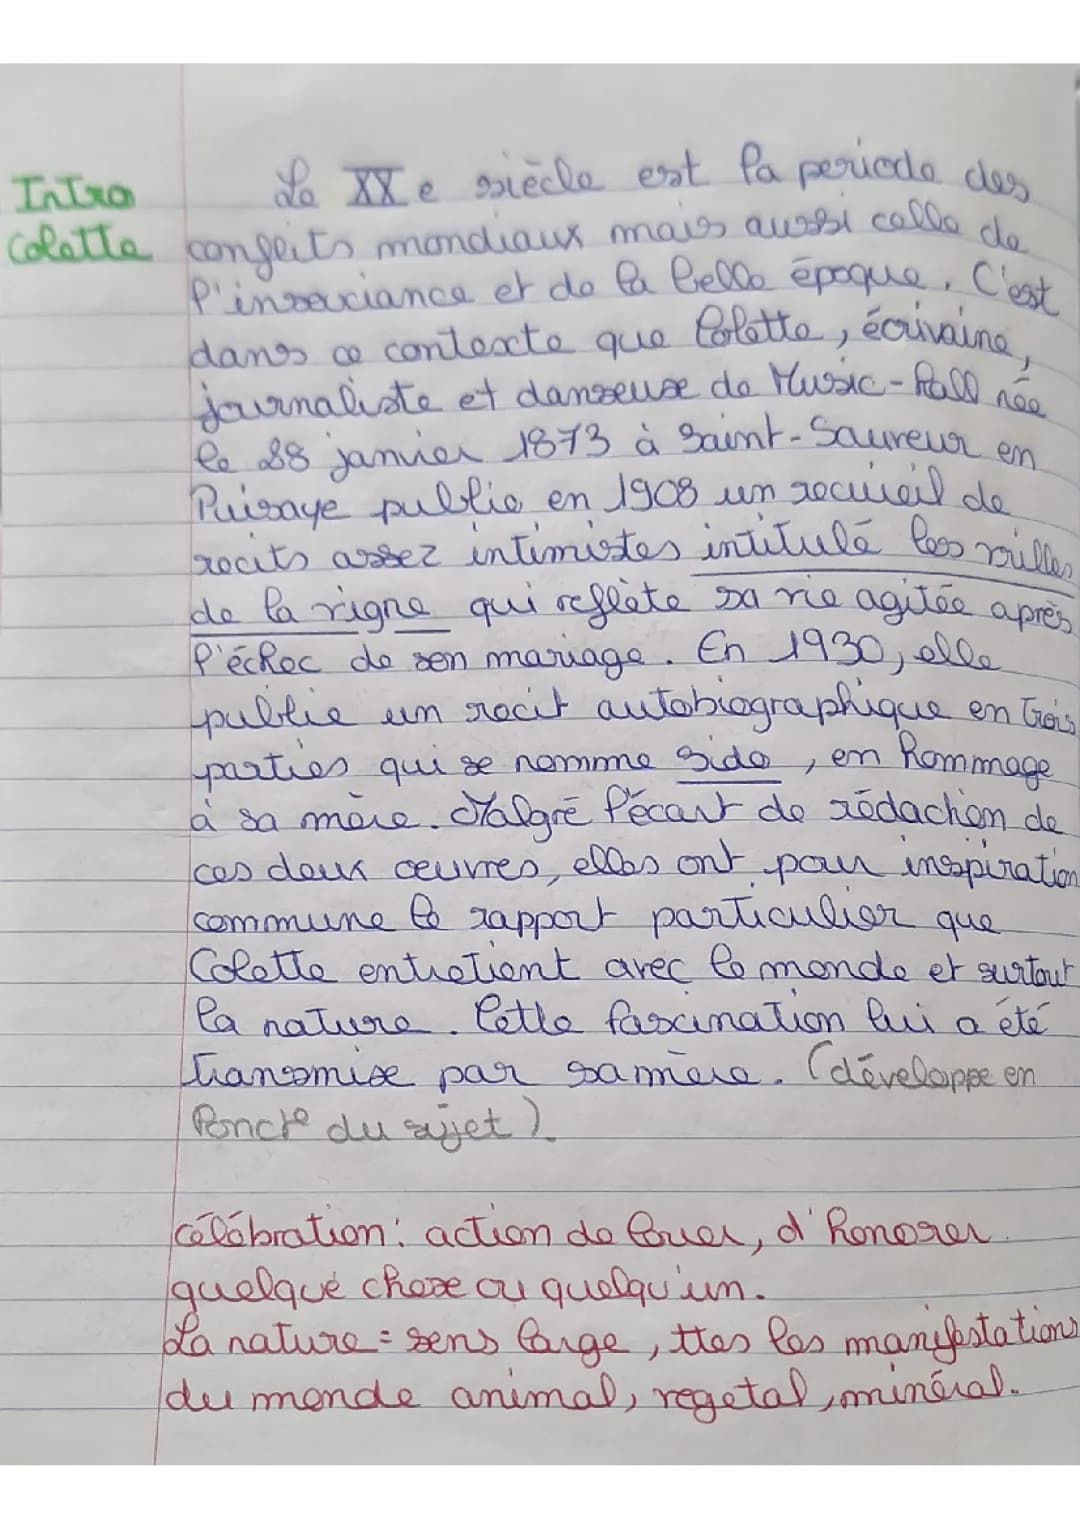 Intro
Colette
Le XXe siècle est la periode des
conflits mondiaux mais aussi celle de
l'insouciance et de la belle époque. C'est
dans ce contexte que Colette, écrivaine,
journaliste et danseuse de Music-hall née
le 28 janvier 1873 à Saint-Sauveur en
Puisaye publie en 1908 un recueil de
recits assez intimistes intitulé les vrilles
de la vigne qui reflète sa vie agitée après
l'échec de son mariage. En 1930, elle
publie un recit autobiographique en trois
parties qui se nomme Sido, en hommage
à sa mère. Malgré l'écart de rédaction de
ces deux œuvres, elles ont pour inspiration
commune le rapport particulier que
Colette entretient avec le monde et surtout
la nature. Cette fascination lui a été
transmise par sa mère. (développe en
fonct° du sujet).
célébration: action de louer, d'honorer
quelque chose ou quelqu'un.
La nature = sens large, ttes les manifestations
du monde animal, vegetal, minéral.